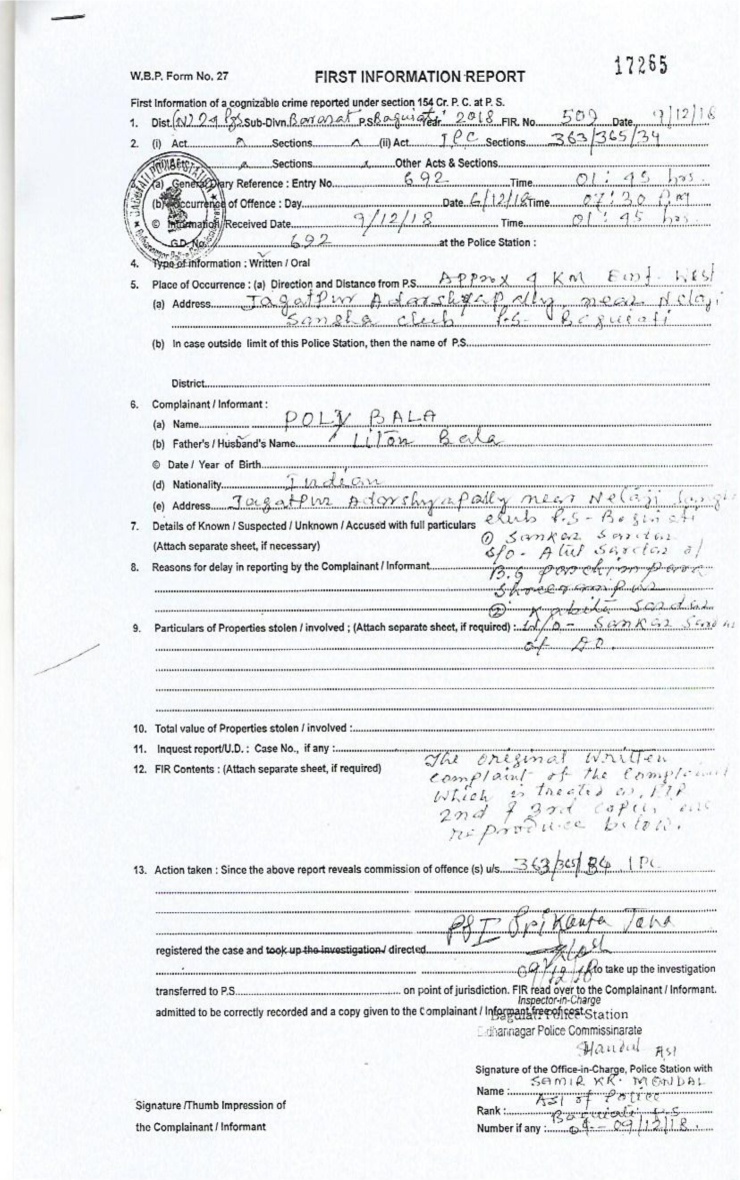 17265
W.B.P. Form No. 27 FIRST INFORMATION REPORT
First Information of a cognizable crime reported under section 154 Cr. P. C. at P. S.
1. Dist. (N) 24 Pgs Sub-Divn. Barasat P.S. Baguiati Year 2018 FIR. No. 509 Date 9/12/18
2. (i) Act Sections (ii) Act IPC Sections 363/365/34
Sections Other Acts & Sections
(a) General Diary Reference : Entry No. 692 Time 01:45 hrs.
(b) Occurrence of Offence : Day Date 6/12/18 Time 07:30 PM
© Information Received Date 9/12/18 Time 01:45 hrs.
G.D. No. 692 at the Police Station :
4. Type of Information : Written / Oral
5. Place of Occurrence : (a) Direction and Distance from P.S. Approx 4 KM East-West
(a) Address Jagatpur Adarshyapally near Netaji
Sangha club P.S- Baguiati
(b) In case outside limit of this Police Station, then the name of P.S.
District
6. Complainant / Informant :
(a) Name POLY BALA
(b) Father's / Husband's Name Liton Bala
© Date / Year of Birth
(d) Nationality Indian
(e) Address Jagatpur Adarshyapally near Netaji Sangha
club P.S- Baguiati
7. Details of Known / Suspected / Unknown / Accused with full particulars
(Attach separate sheet, if necessary)
① Sankar Sardar
S/o- Atul Sardar of
8. Reasons for delay in reporting by the Complainant / Informant
② Kabita Sardar
9. Particulars of Properties stolen / involved ; (Attach separate sheet, if required) : W/o- Sankar Sardar
of DO.
10. Total value of Properties stolen / involved :
11. Inquest report/U.D. : Case No., if any :
12. FIR Contents : (Attach separate sheet, if required)
The original written
complaint of the complainant
which is treated as FIR
2nd & 3rd copies are
reproduce below.
13. Action taken : Since the above report reveals commission of offence (s) u/s. 363/365/34 IPC
PSI Srikanta Jana
registered the case and took up the investigation / directed
09/12/18 to take up the investigation
transferred to P.S. on point of jurisdiction. FIR read over to the Complainant / Informant.
Inspector-in-Charge
admitted to be correctly recorded and a copy given to the Complainant / Informant free of cost
Baguiati Police Station
Bidhannagar Police Commissinarate
Mandal ASI
Signature of the Office-in-Charge, Police Station with
Name : SAMIR KR. MONDAL
Rank : ASI of Police
Baguiati P.S
Number if any : 09/12/18.
Signature /Thumb Impression of
the Complainant / Informant